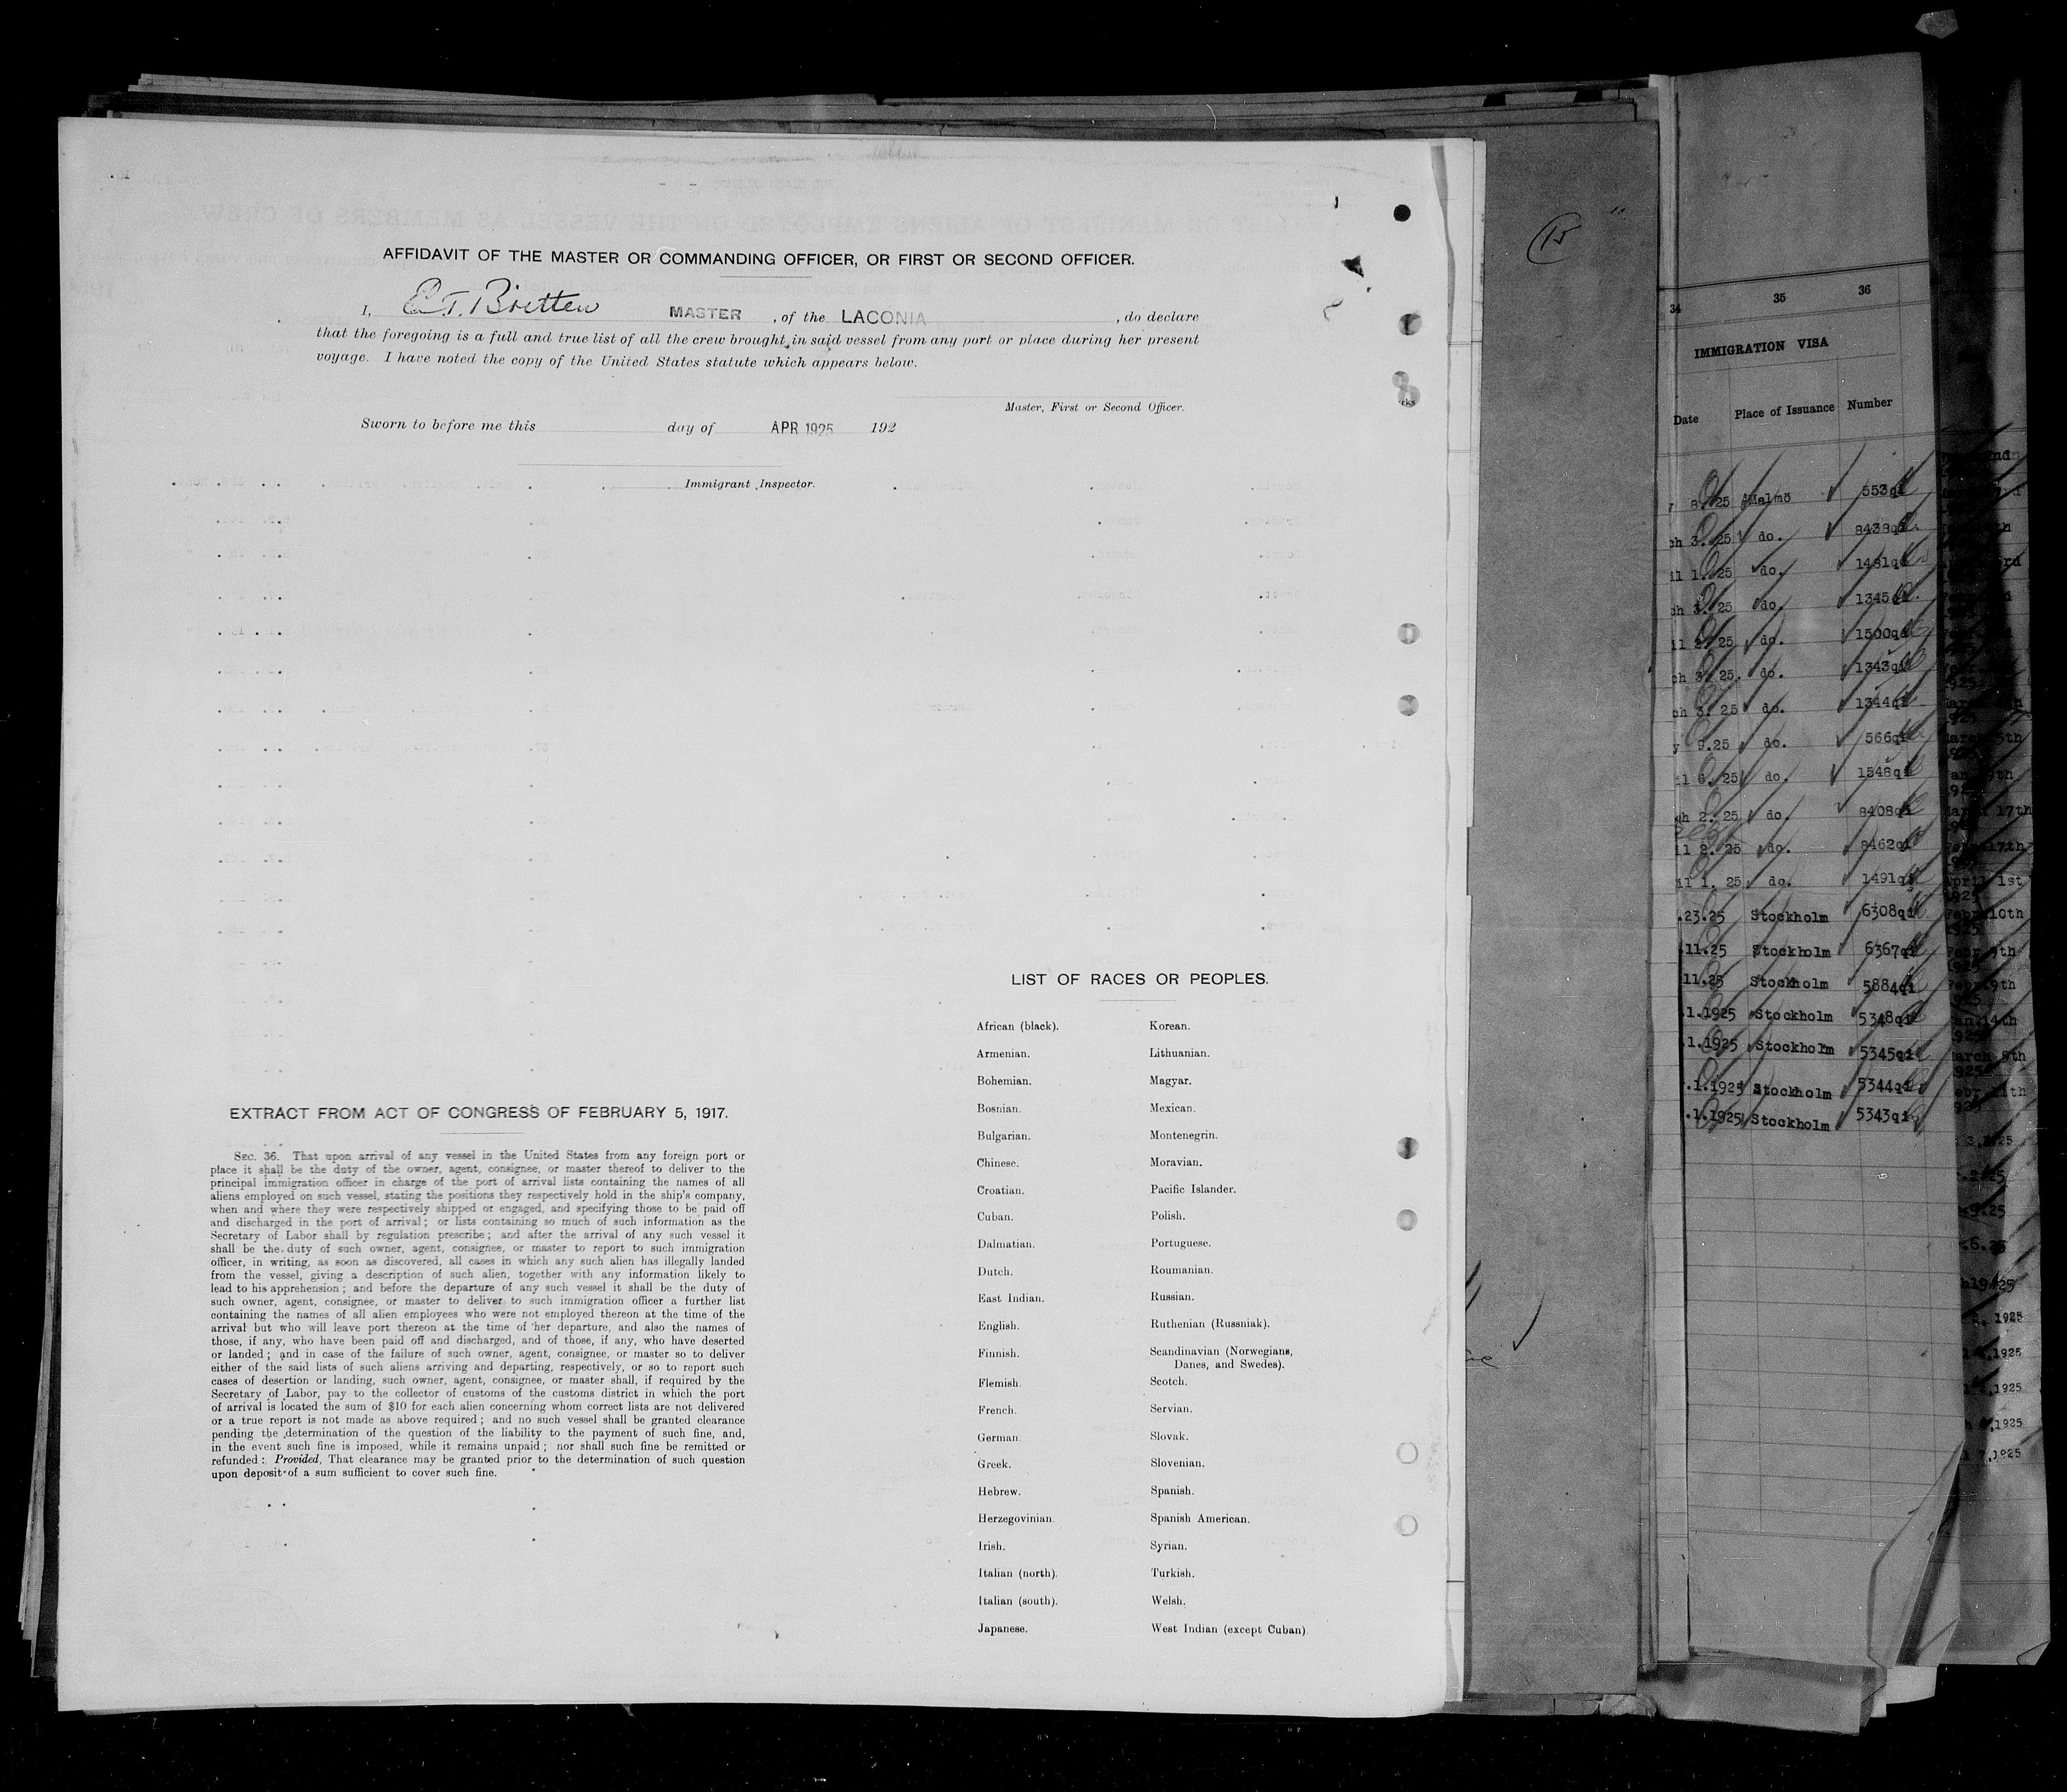 AFFIDAVIT OF THE MASTER OR COMMANDING OFFICER, OR FIRST OR SECOND OFFICER.
I, E.T. Britten MASTER , of the LACONIA , do declare
that the foregoing is a full and true list of all the crew brought in said vessel from any port or place during her present
voyage. I have noted the copy of the United States statute which appears below.
Master, First or Second Officer.
Sworn to before me this day of APR 1925 192
Immigrant Inspector.
EXTRACT FROM ACT OF CONGRESS OF FEBRUARY 5, 1917.
SEC. 36. That upon arrival of any vessel in the United States from any foreign port or
place it shall be the duty of the owner, agent, consignee, or master thereof to deliver to the
principal immigration officer in charge of the port of arrival lists containing the names of all
aliens employed on such vessel, stating the positions they respectively hold in the ship's company,
when and where they were respectively shipped or engaged, and specifying those to be paid off
and discharged in the port of arrival; or lists containing so much of such information as the
Secretary of Labor shall by regulation prescribe; and after the arrival of any such vessel it
shall be the duty of such owner, agent, consignee, or master to report to such immigration
officer, in writing, as soon as discovered, all cases in which any such alien has illegally landed
from the vessel, giving a description of such alien, together with any information likely to
lead to his apprehension; and before the departure of any such vessel it shall be the duty of
such owner, agent, consignee, or master to deliver to such immigration officer a further list
containing the names of all alien employees who were not employed thereon at the time of the
arrival but who will leave port thereon at the time of her departure, and also the names of
those, if any, who have been paid off and discharged, and of those, if any, who have deserted
or landed; and in case of the failure of such owner, agent, consignee, or master so to deliver
either of the said lists of such aliens arriving and departing, respectively, or so to report such
cases of desertion or landing, such owner, agent, consignee, or master shall, if required by the
Secretary of Labor, pay to the collector of customs of the customs district in which the port
of arrival is located the sum of $10 for each alien concerning whom correct lists are not delivered
or a true report is not made as above required; and no such vessel shall be granted clearance
pending the determination of the question of the liability to the payment of such fine, and,
in the event such fine is imposed, while it remains unpaid; nor shall such fine be remitted or
refunded: Provided, That clearance may be granted prior to the determination of such question
upon deposit of a sum sufficient to cover such fine.
LIST OF RACES OR PEOPLES.
African (black). Korean.
Armenian. Lithuanian.
Bohemian. Magyar.
Bosnian. Mexican.
Bulgarian. Montenegrin.
Chinese. Moravian.
Croatian. Pacific Islander.
Cuban. Polish.
Dalmatian. Portuguese.
Dutch. Roumanian.
East Indian. Russian.
English. Ruthenian (Russniak).
Finnish. Scandinavian (Norwegians,
Danes, and Swedes).
Flemish. Scotch.
French. Servian.
German. Slovak.
Greek. Slovenian.
Hebrew. Spanish.
Herzegovinian. Spanish American.
Irish. Syrian.
Italian (north). Turkish.
Italian (south). Welsh.
Japanese. West Indian (except Cuban)
15
34 35 36
IMMIGRATION VISA
Date Place of Issuance Number
8.25 Malmö 553qi
3.25 do. 8438qi
1.25 do. 1481qi
3.25 do. 1345qi
2.25 do. 1500qi
3.25. do. 1343qi
3.25 do. 1344qi
9.25 do. 566qi
6.25 do. 1548qi
2.25 do. 8408qi
2.25 do. 8462qi
1.25 do. 1491qi
.23.25 Stockholm 6308qi
.11.25 Stockholm 6367qi
11.25 Stockholm 5884qi
.1.1925 Stockholm 5348qi
.1.1925 Stockholm 5345qi
.1.1925 Stockholm 5344qi
.1.1925 Stockholm 5343qi